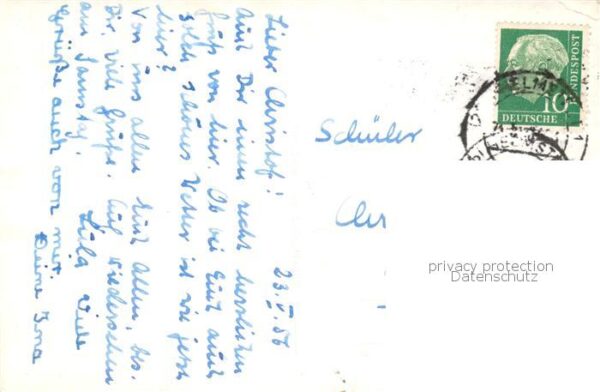 23.V.56
Lieber Christof!
Auch Dir einen recht herzlichen
Gruß von hier. Ob bei Euch auch
solch schönes Wetter ist wie jetzt
hier?
Von uns allen Euch Allen, bes.
Dir, viele Grüße. Auf Wiedersehen
am Samstag. Viele
Grüße auch von mir.
Deine Ina
Schüler
DEUTSCHE
BUNDESPOST
10
privacy protection
Datenschutz